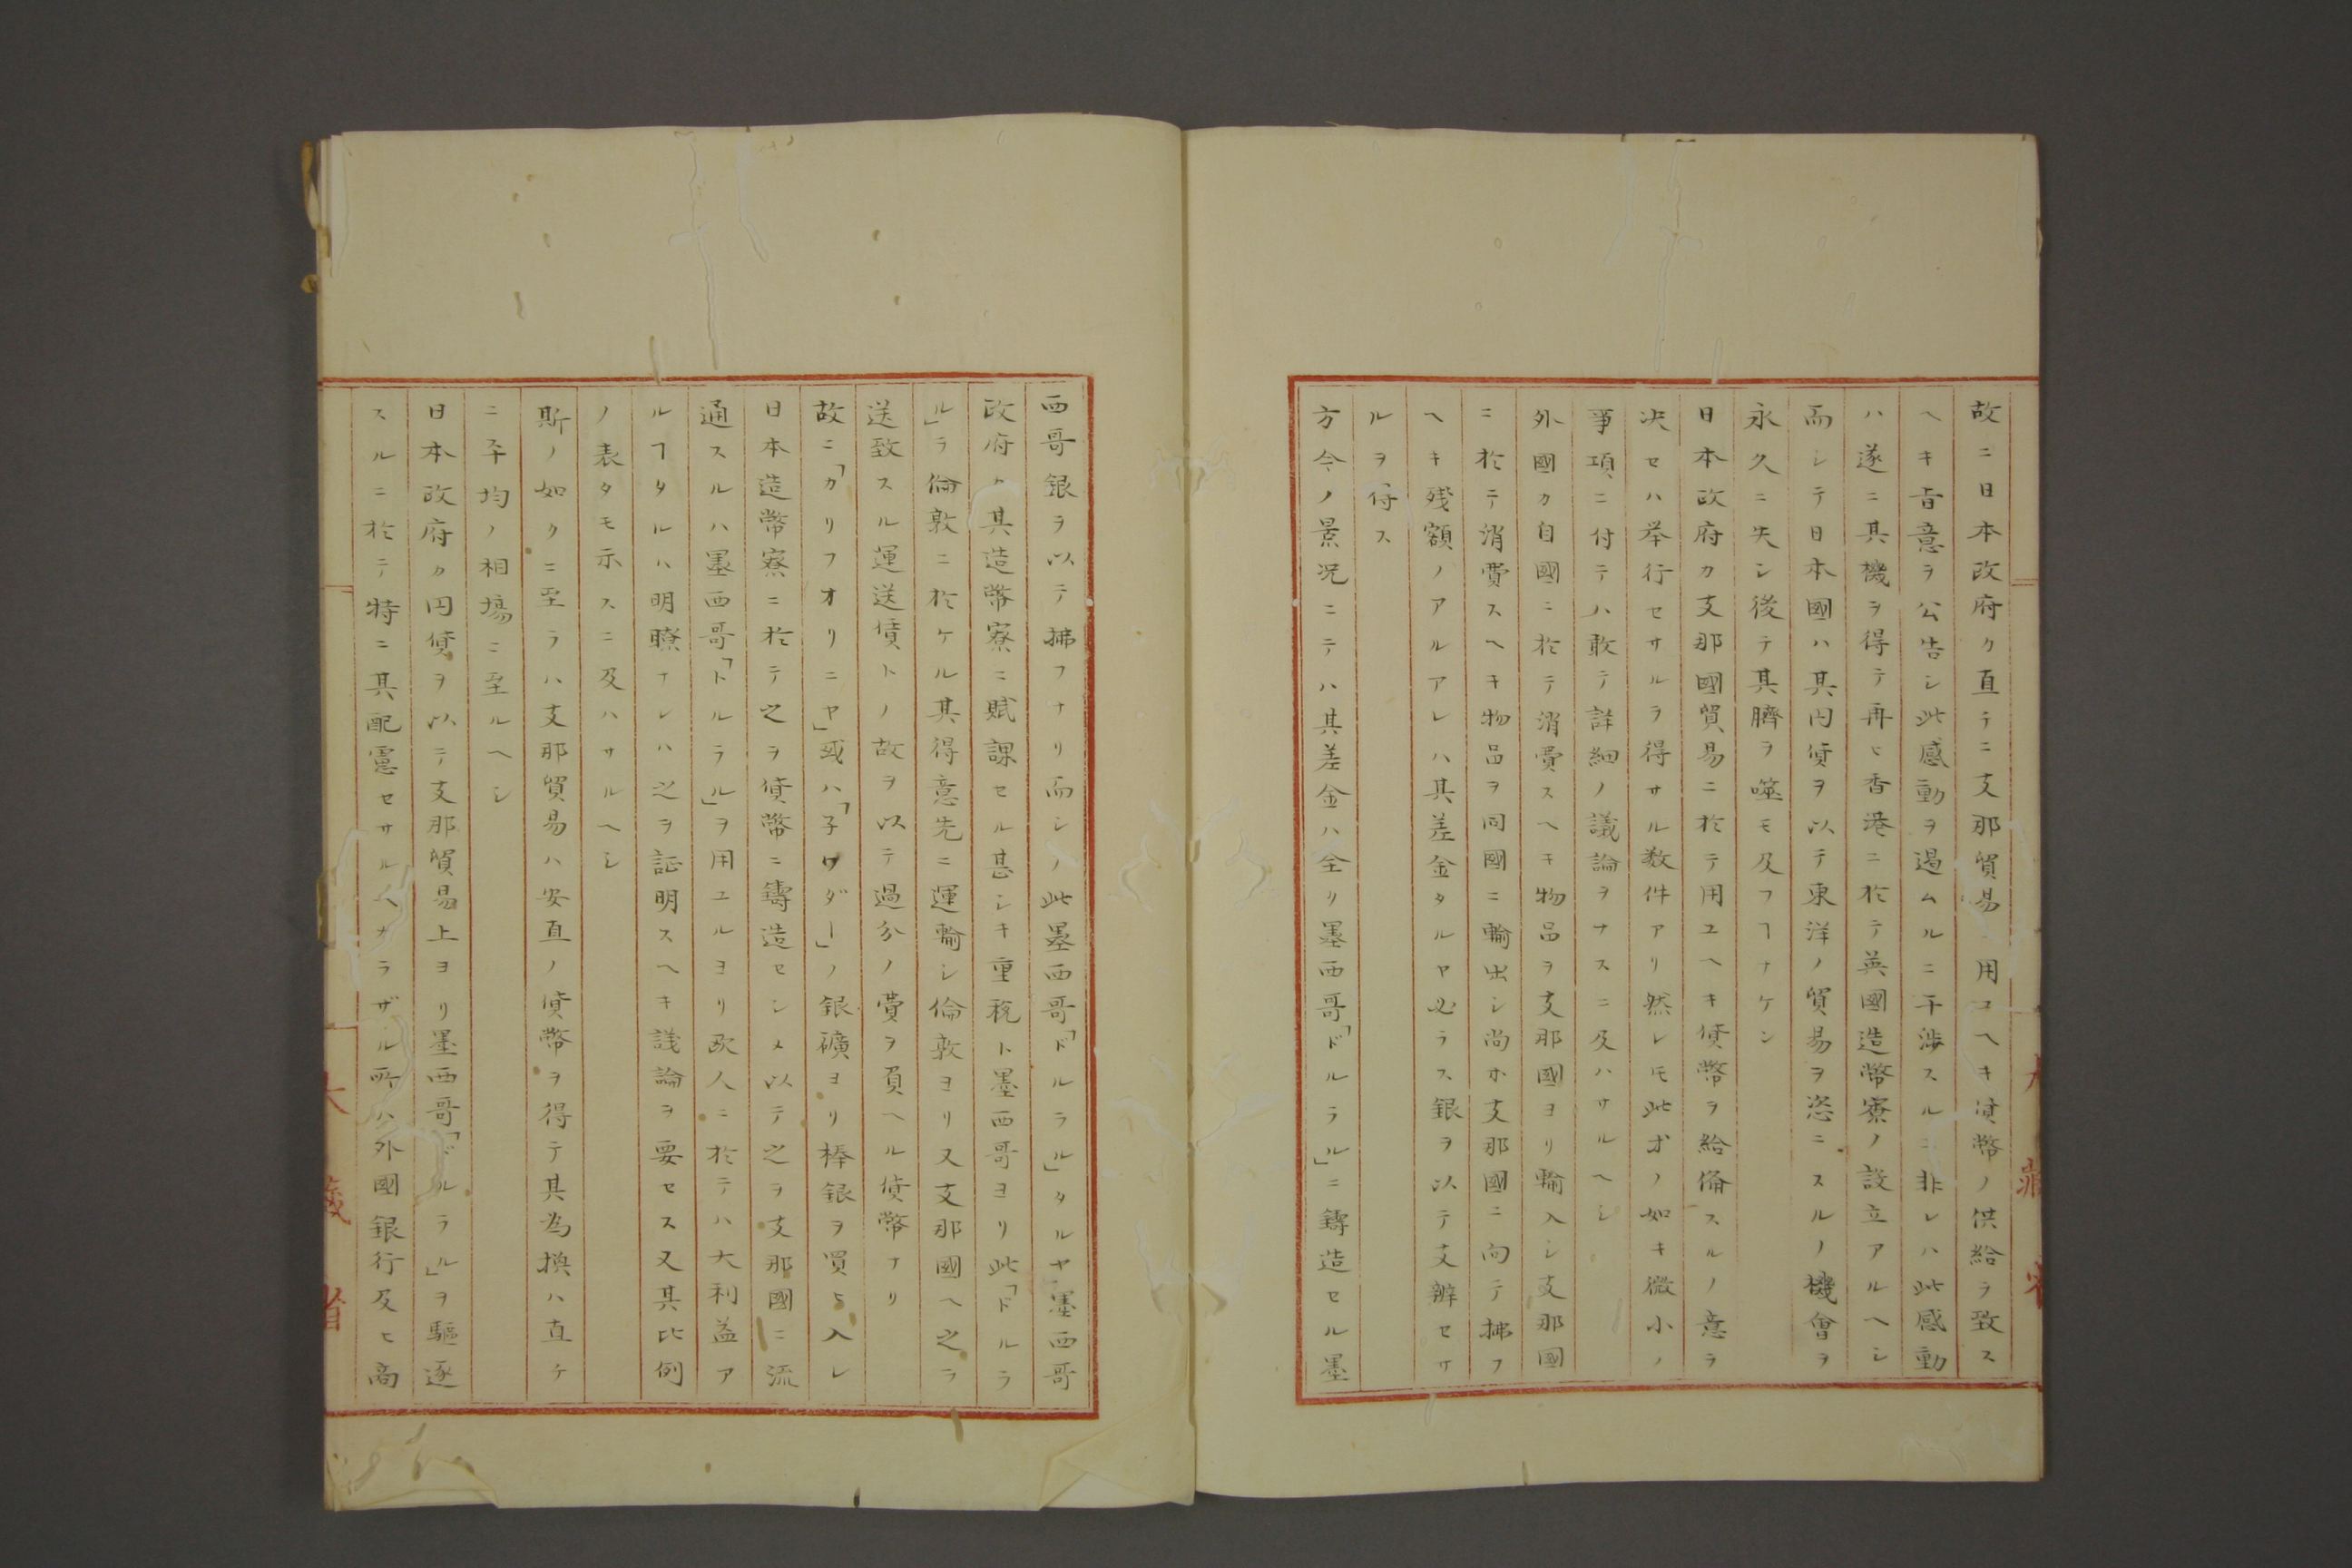 故ニ日本政府ク直チニ支那貿易用ユヘキ貨幣ノ供給ヲ致ス
ヘキ旨意ヲ公告シ此感動ヲ遏ムルニ干渉スルニ非レハ此感動
ハ遂ニ其機ヲ得テ再ヒ香港ニ於テ英國造幣寮ノ設立アルヘシ
而シテ日本國ハ其円貨ヲ以テ東洋ノ貿易ヲ恣ニスルノ機會ヲ
永久ニ失シ後テ其臍ヲ噬モ及フヿナケン
日本政府カ支那國貿易ニ於テ用ユヘキ貨幣ヲ給備スルノ意ヲ
决セハ挙行セサルヲ得サル数件アリ然レモ此才ノ如キ微小ノ
事項ニ付テハ敢テ詳細ノ議論ヲナスニ及ハサルヘシ
外國カ自國ニ於テ消費スヘキ物品ヲ支那國ヨリ輸入シ支那國
ニ於テ消費スヘキ物品ヲ同國ニ輸出シ尚ホ支那國ニ向テ拂フ
ヘキ残額ノアルアレハ其差金タルヤ必ラス銀ヲ以テ支辦セサ
ルヲ得ス
方今ノ景况ニテハ其差金ハ全リ墨西哥「ドルラル」ニ鑄造セル墨
西哥銀ヲ以テ拂フナリ而シノ此墨西哥「ドルラル」タルヤ墨西哥
政府ハ其造幣寮ニ賦課セル甚シキ重税ト墨西哥ヨリ此「ドルラ
ル」ヲ倫敦ニ於ケル其得意先ニ運輸シ倫敦ヨリ又支那國ヘ之ヲ
送致スル運送債トノ故ヲ以テ過分ノ費ヲ負ヘル貨幣ナリ
故ニ「カリフオリニヤ」或ハ「子ワダー」ノ銀礦ヨリ棒銀ヲ買ヒ入レ
日本造幣寮ニ於テ之ヲ貨幣ニ鑄造セシメ以テ之ヲ支那國ニ流
通スルハ墨西哥「トルラル」ヲ用ユルヨリ欧人ニ於テハ大利益ア
ルヿタルハ明瞭ナレハ之ヲ証明スヘキ議論ヲ要セス又其比例
ノ表タモ示スニ及ハサルヘシ
斯ノ如クニ至ラハ支那貿易ハ安直ノ貨幣ヲ得テ其為換ハ直ケ
ニ平均ノ相塲ニ至ルヘシ
日本政府カ円貨ヲ以テ支那貿易上ヨリ墨西哥「ドルラル」ヲ驅逐
スルニ於テ特ニ其配慮セサルヘカラザル所ハ外國銀行及ヒ商
大藏省